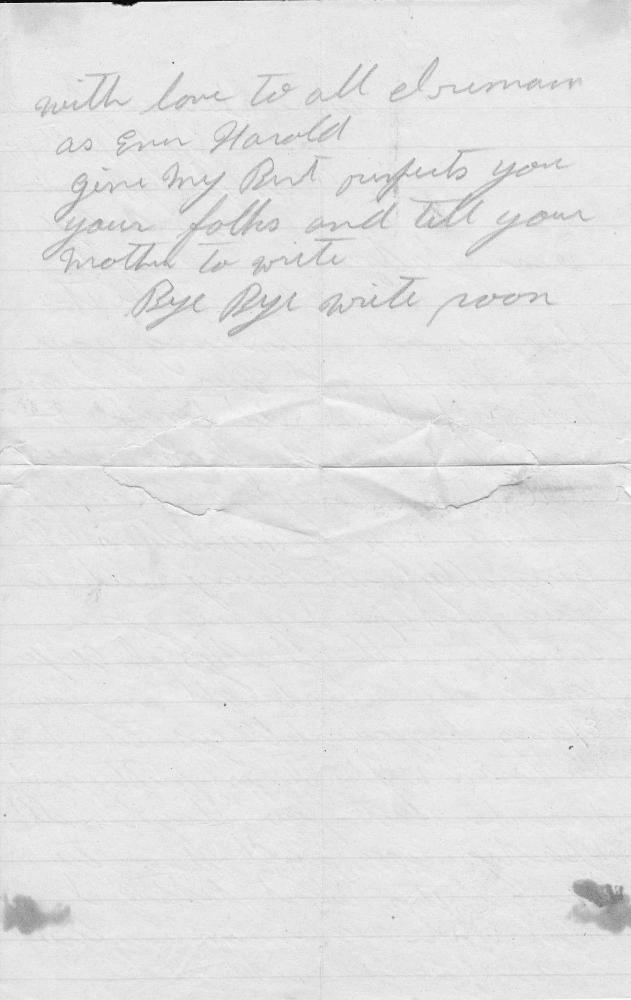 with love to all I remain
as Ever Harold
give my Best respects you
your folks and tell your
mother to write
Bye Bye write soon